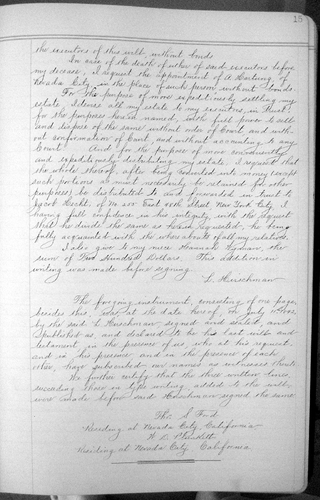 15
the executors of this will without bonds.
In case of the death of either of said executors before
my decease, I request the appointment of A. Hartung of
Nevada City, in the place of such person without bonds.
For the purpose of more expeditiously settling my
estate, I devise all my estate to my executors, in trust
for the purposes herein named, with full power to sell
and dispose of the same without order of Court, and with-
out confirmation of Court, and without accounting to any
Court. And for the purpose of more conveniently
and expeditiously distributing my estate, I request that
the whole thereof, after being converted into money (except
such portions as must necessarily be retained for other
purposes) be distributed to and forwarded in trust to
Jacob Hecht, of No. East 60th Street New York City, I
having full confidence in his integrity, with the request
that he divide the same as herein requested, he being
fully acquainted with the whereabouts of all my relatives.
I also give to my niece Hannah Hyman, the
sum of Five Hundred Dollars. This addition in
writing was made before signing.
L. Hirschman
The foregoing instrument, consisting of one page,
besides this, was at the date hereof, on July
by the said L Hirschman signed and sealed and
published as, and declared to be his last will and
testament, in the presence of us, who at his request
and in his presence, and in the presence of each
other, have subscribed our names as witnesses thereto.
We further certify that the three written lines
succeeding these in type writing, added to the will,
were made before said Hirschman signed the same.
Thos S. Ford
Residing at Nevada City, California
Residing at Nevada City, California